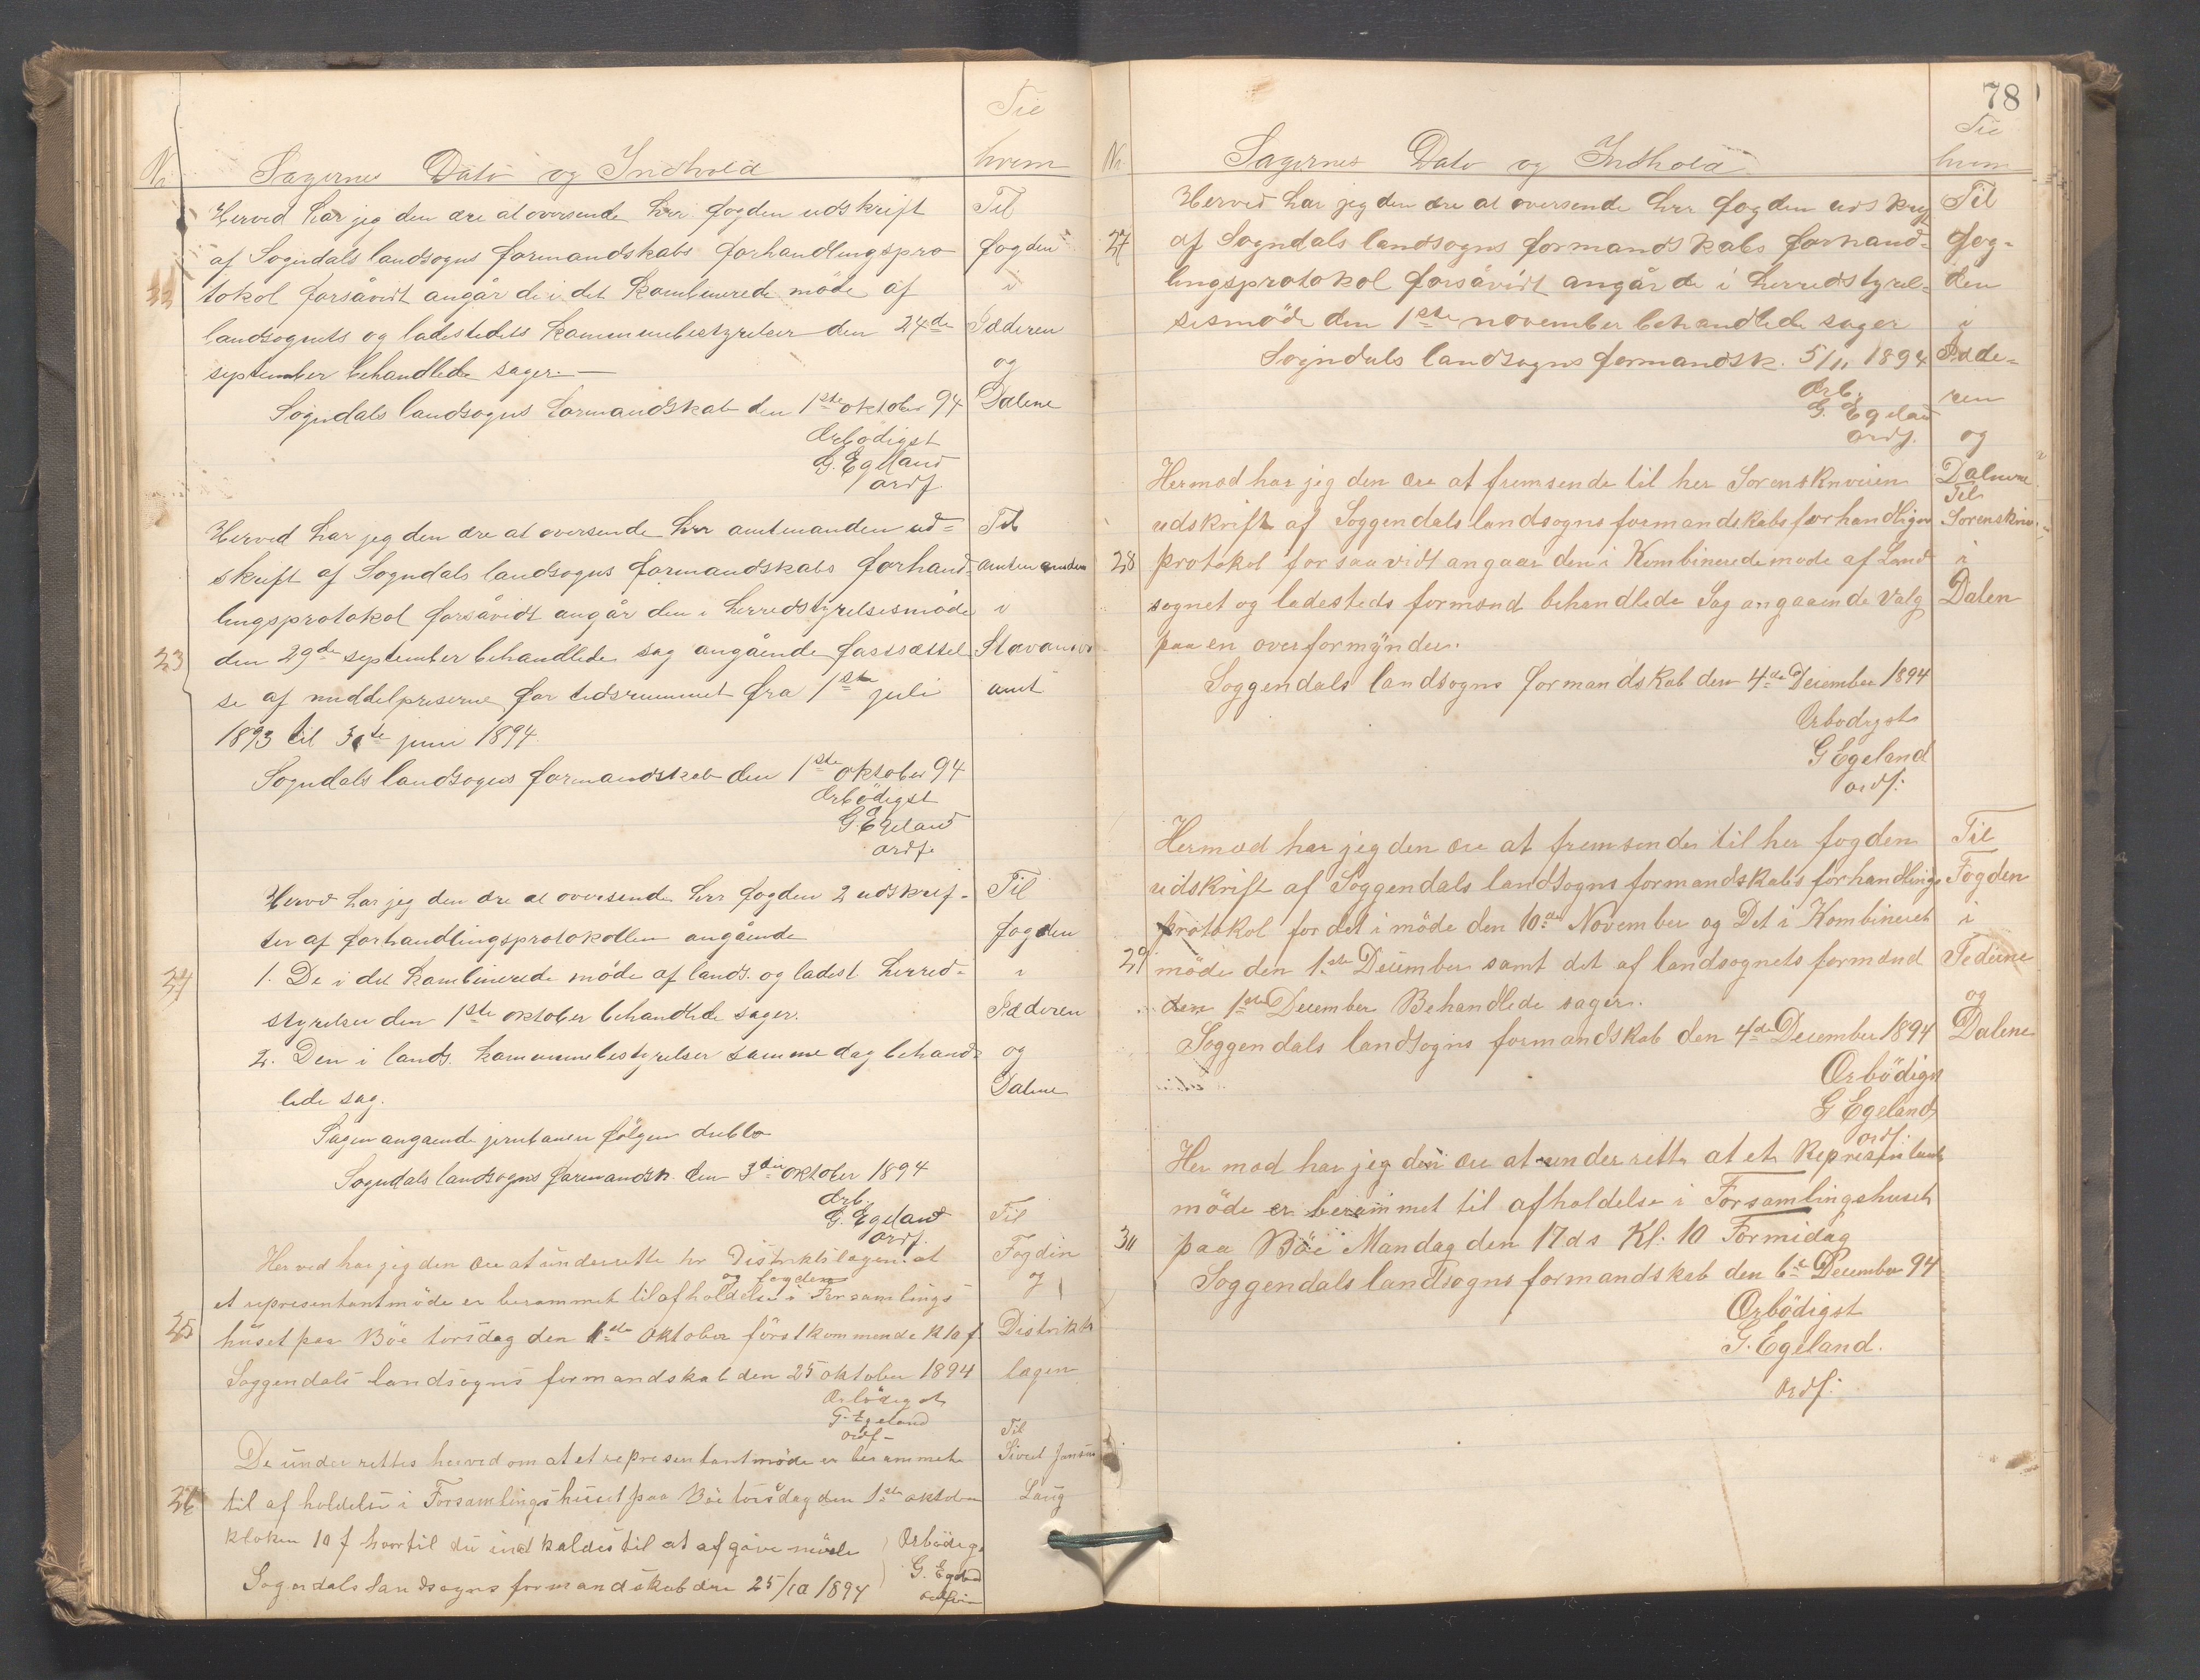 Til
Nr. Sagernes Dato og Indhold hvem
Herved har jeg den ære at oversende herr fogden udskrift Til
af Sogndals landsogns formandskabs forhandlingspro- fogden
22 tokol forsåvidt angår de i det kombinerede møde af i
landsognets og ladestedets kommunebestyrelser den 24de Jæderen
september behandlede sager.— og
Sogndals landsogns formandskab den 1ste oktober 94 Dalene
Ærbødigst
G. Egeland
ordf.
Herved har jeg den ære at oversende herr amtmanden ud= Til
skrift af Sogndals landsogns formandskabs forhand= amtmanden
lingsprotokol forsåvidt angår den i herredstyrelsesmøde i
23 den 29de september behandlede sag angående fastsættel Stavanger
se af middelpriserne for tidsrummet fra 1ste juli amt
1893 til 30te juni 1894.
Sogndals landsogns formandskab den 1ste oktober 94
Ærbödigst
G. Egeland
ordf.
Herved har jeg den ære at oversende herr fogden 2 udskrif- Til
ter af forhandlingsprotokollen angående fogden
24 1. De i det kombinerede møde af lands. og ladest. herred= i
styrelser den 1ste oktober behandlede sager. Jæderen
2. Den i lands. kommunebestyrelser samme dag behand= og
lede sag. Dalene
Sagen angaende jernbanen fölger dublo
Sogndals landsogns formandsk. den 3die oktober 1894
Ærb.
G. Egeland
ordf.
Til
Herved har jeg den ære at underrette hr Distriktslægen at Fogden
og fogden og
et representantmöde er berammet til afholdelse i Forsamlings
25 huset paa Böe torsdag den 1ste Oktober förstkommende k 10 f Distrikts
Soggendals landsogns formandskab den 25 oktober 1894 lægen
Ærbödigst
G. Egeland
ordf- Til
De underrettes herved om at et representantmöde er berammet Sivert Jansen
26 til afholdelse i Forsamlingshuset paa Böe torsdag den 1ste oktober Laug
kloken 10 f hvortil du indkaldes til at afgive möde Ærbödigst
Sogndals landsogns formandskab den 25/10 1894 G. Egeland
78
Til
Nr. Sagernes Dato og Indhold hvem
Herved har jeg den ære at oversende herr fogden udskrif Til
27 af Sogndals landsogns formandskabs forhand= fog=
lingsprotokol forsåvidt angår de i herredstyrel= den
sesmöde den 1ste november behandlede sager i
Sogndals landsogns formandsk. 5/11 1894 Jæde=
Ærb. ren
G. Egeland
ordf. og
Hermed har jeg den ære at fremsende til her Sorenskriveren Dalerne
Til
udskrift af Soggendals landsogns formandskabs forhandligns Sorenskriver
28 protokol forsaavidt angaar den i Kombinerede møde af Land i
sognet og ladesteds formænd behandlede Sag angaaende Valg Dalen
paa en overformynder.
Soggendals landsogns formandskab den 4de December 1894
Ærbodigst
G Egeland
ordf:
Hermed har jeg den ære at fremsende til her fogden Til
udskrift af Soggendals landsogns formandskabs forhandlings Fogden
protokol for det i möde den 10de November og Det i Kombineret i
29 möde den 1ste December samt det af landsognets formænd Jederne
den 1ste December Behandlede sager. og
Soggendals landsogns formandskab den 4de December 1894 Dalene
Ærbödigst
G Egeland
ordf:
Her med har jeg den ære at underrette at et Representant
möde er berammet til afholdelse i Forsamlingshuset
30 paa Böe Mandag den 17 ds Kl: 10 Formidag
Soggendals landsogns formandskab den 6te December 94
Ærbödigst
G. Egeland.
ordf: